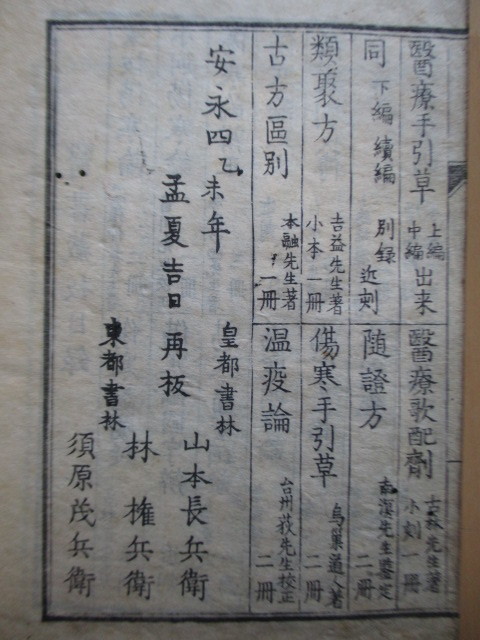 醫療手引草 上編 中編 出来
同 下編 續編 別録 近刻
類聚方 吉益先生著 小本一冊
古方區別 本融先生著 一冊
醫療歌配劑 古林先生著 小刻一冊
随證方 南溟先生鑒定 二冊
傷寒手引草 烏巢道人著 二冊
温疫論 台州荻先生校正 二冊
安永四乙未年
孟夏吉日 再板
皇都書林
山本長兵衛
林 権兵衛
東都書林
須原茂兵衛